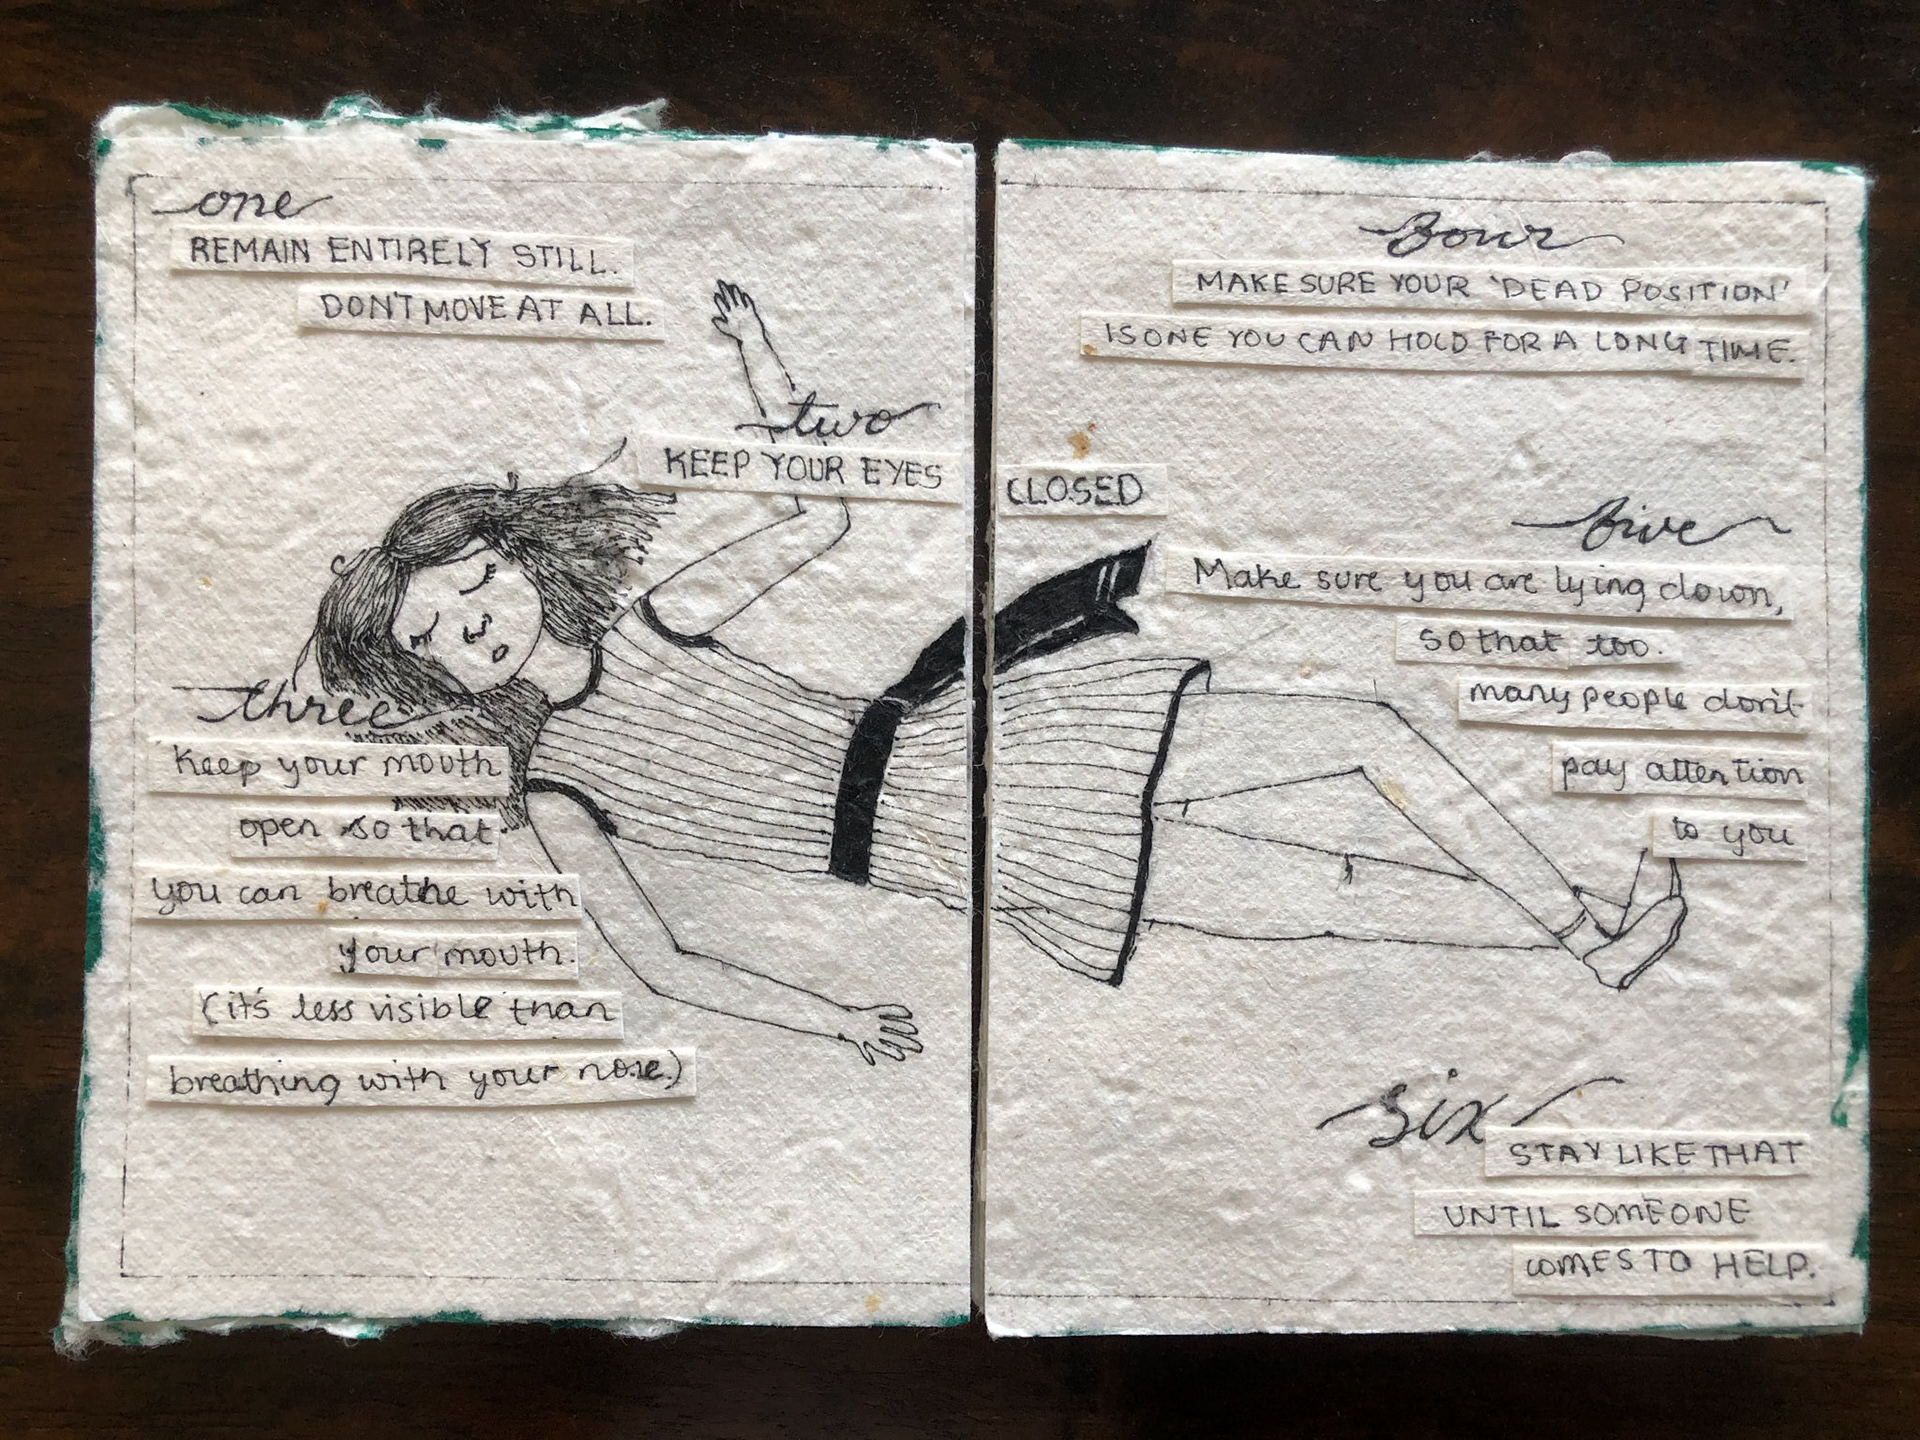 one
REMAIN ENTIRELY STILL.
DON'T MOVE AT ALL.
two
KEEP YOUR EYES CLOSED
three
Keep your mouth
open so that
you can breathe with
your mouth.
(it's less visible than
breathing with your nose.)
four
MAKE SURE YOUR 'DEAD POSITION'
IS ONE YOU CAN HOLD FOR A LONG TIME.
five
Make sure you are lying down,
so that too.
many people don't
pay attention
to you
six
STAY LIKE THAT
UNTIL SOMEONE
COMES TO HELP.